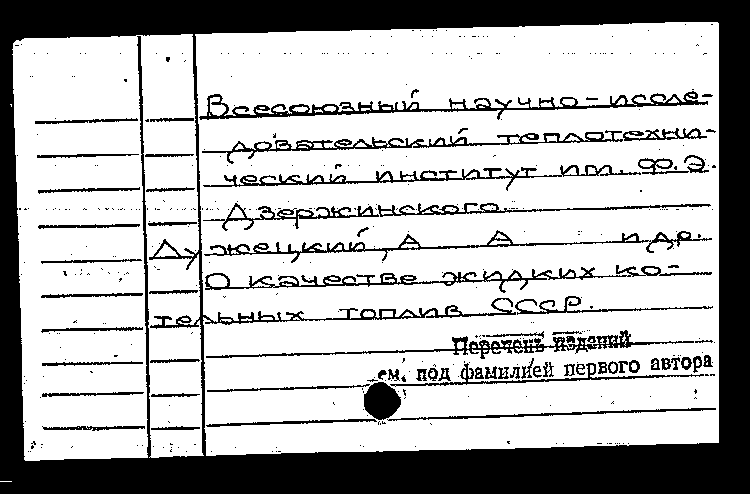 Всесоюзный научно-иссле-
довательский теплотехни-
ческий институт им. Ф.Э.
Дзержинского.
Лужецкий, А А и др.
О качестве жидких ко-
тельных топлив СССР.
Перечень изданий
см. под фамилией первого автора